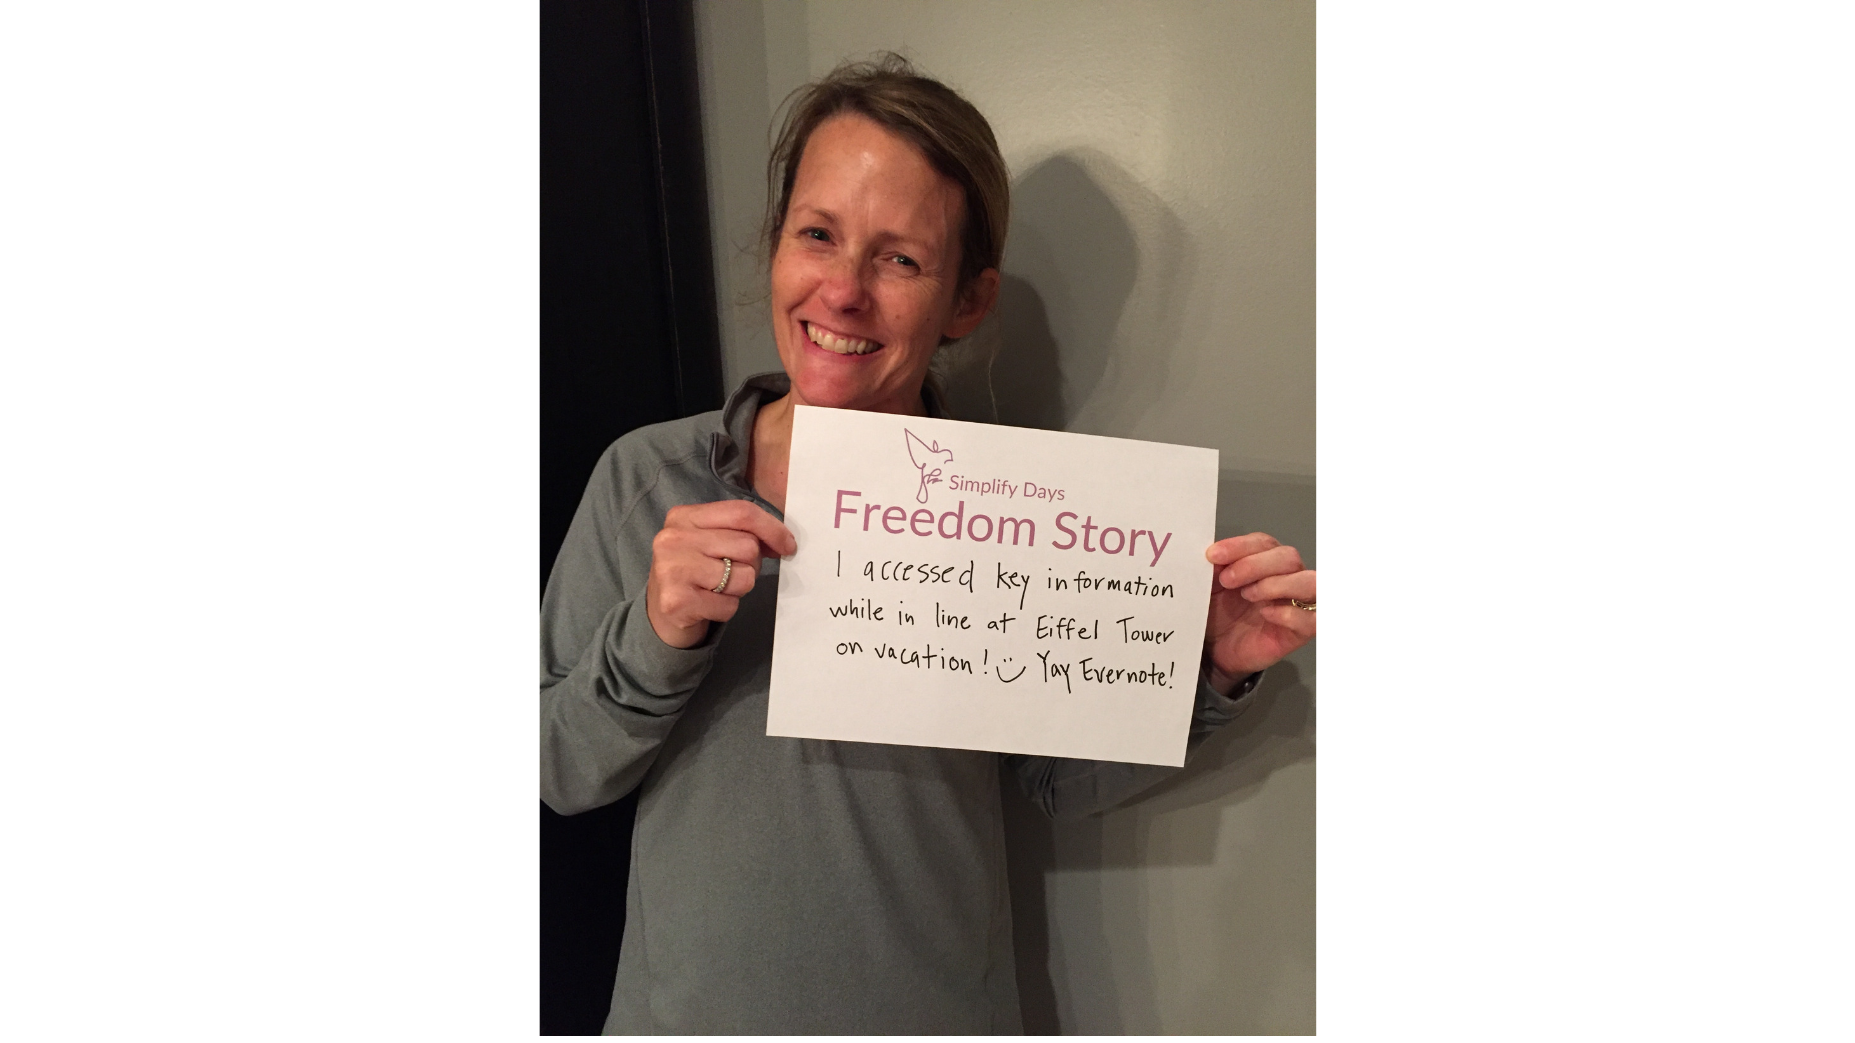 Simplify Days
Freedom Story
I accessed key information
while in line at Eiffel Tower
on vacation! Yay Evernote!